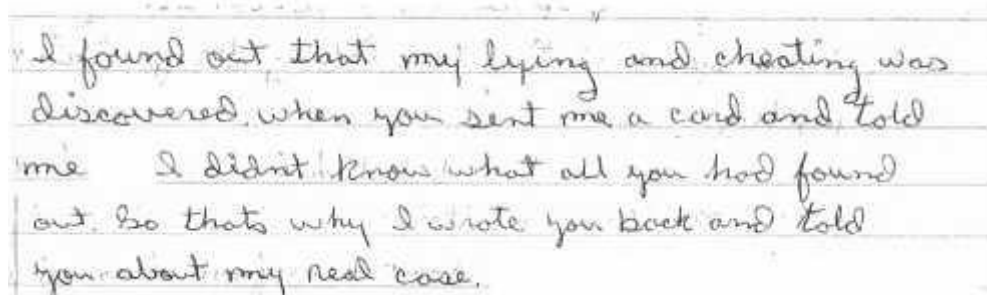 I found out that my lying and cheating was
discovered, when you sent me a card and told
me I didn't know what all you had found
out. So thats why I wrote you back and told
you about my real case.